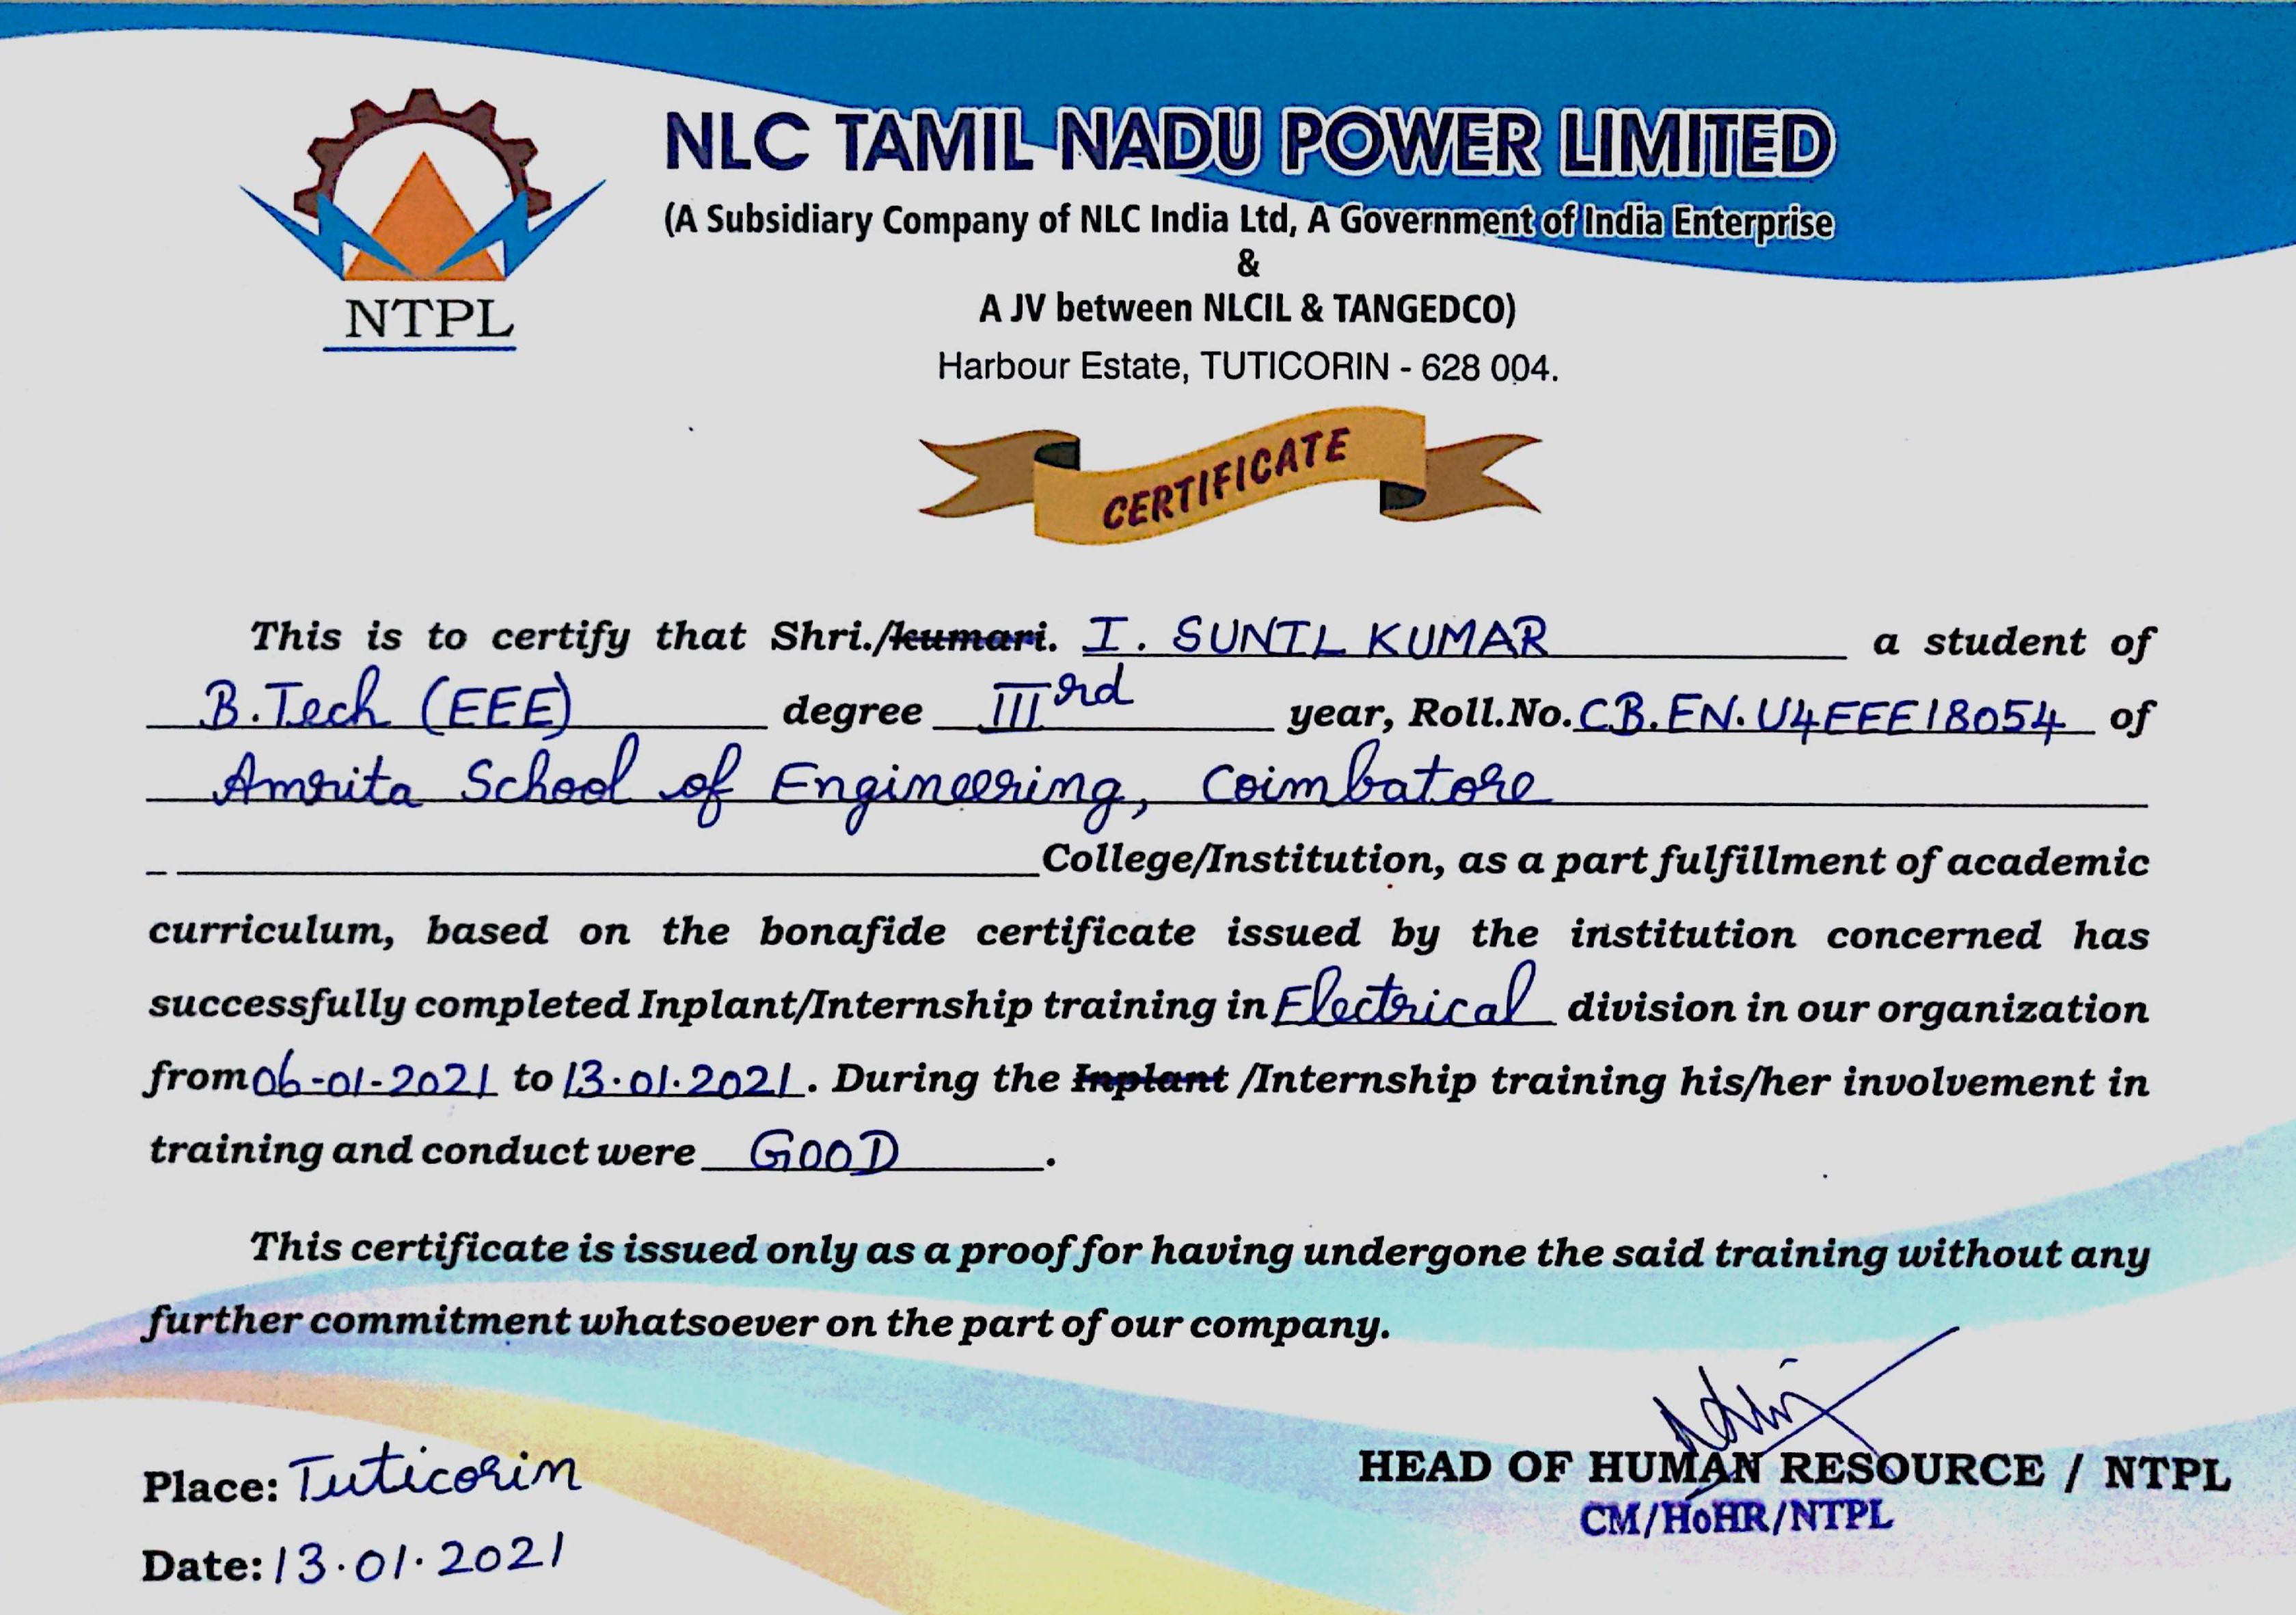 NLC TAMIL NADU POWER LIMITED
(A Subsidiary Company of NLC India Ltd, A Government of India Enterprise
&
A JV between NLCIL & TANGEDCO)
Harbour Estate, TUTICORIN - 628 004.
NTPL
CERTIFICATE
This is to certify that Shri./kumari. I. SUNIL KUMAR a student of
B.Tech (EEE) degree IIIrd year, Roll.No. CB.EN.U4EEE18054 of
Amrita School of Engineering, Coimbatore
College/Institution, as a part fulfillment of academic
curriculum, based on the bonafide certificate issued by the institution concerned has
successfully completed Inplant/Internship training in Electrical division in our organization
from 06-01-2021 to 13.01.2021. During the Inplant /Internship training his/her involvement in
training and conduct were GOOD.
This certificate is issued only as a proof for having undergone the said training without any
further commitment whatsoever on the part of our company.
Place: Tuticorin
Date: 13.01.2021
HEAD OF HUMAN RESOURCE / NTPL
CM/HoHR/NTPL